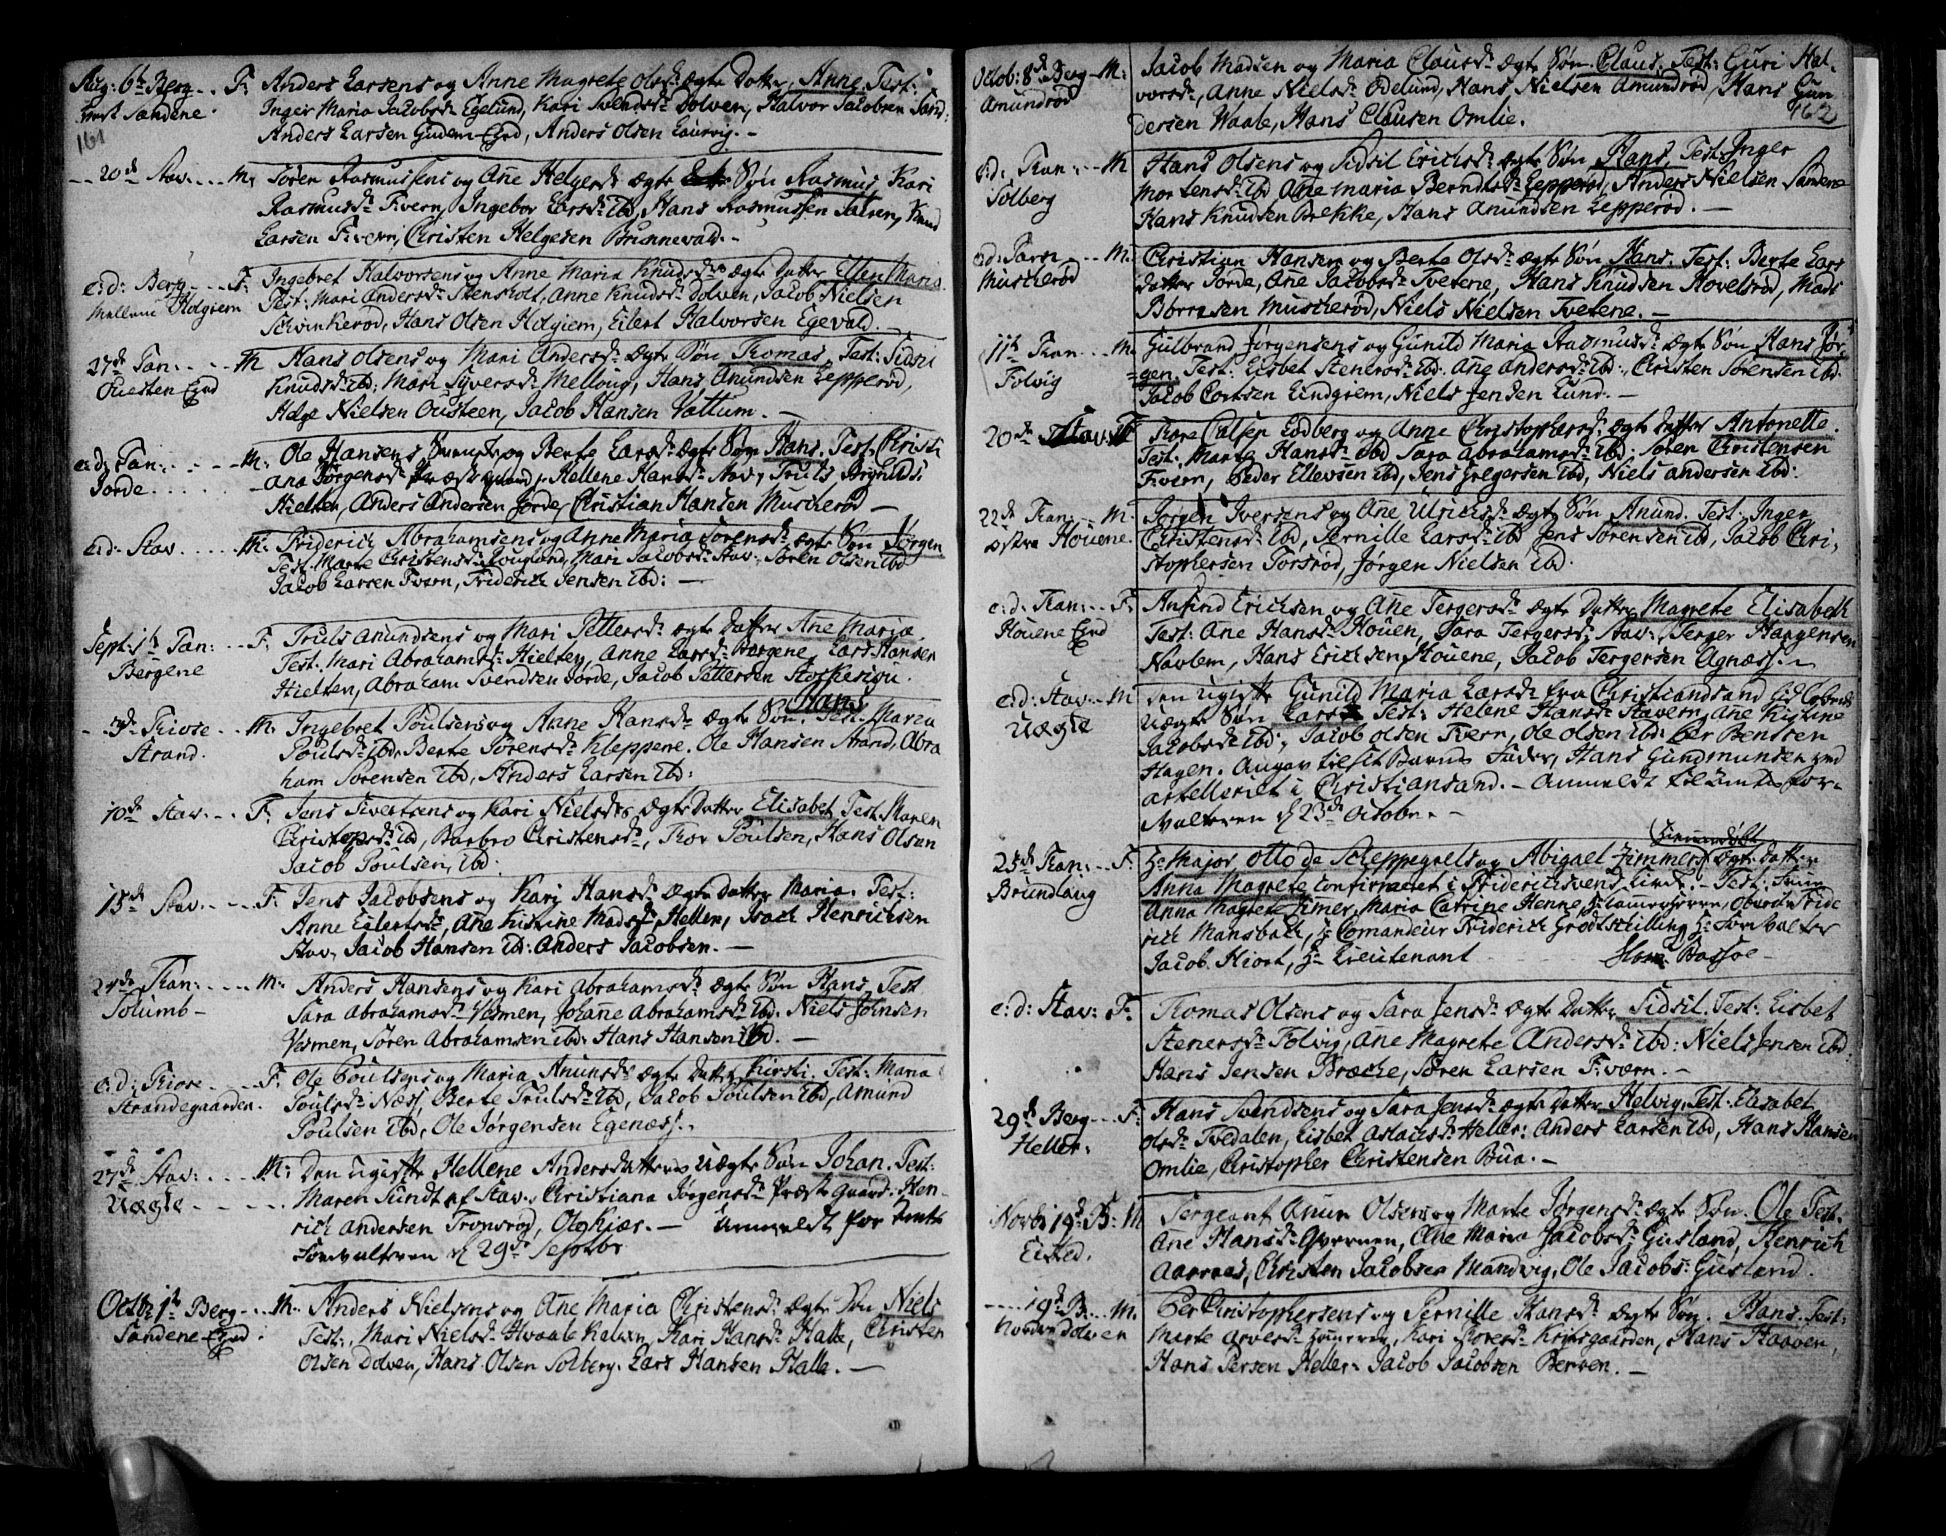 Aug: 6te Berg... F. Anders Larsens og Anne Magrete Olsd. ægte Datter, Anne. Test:
Sandene. Inger Maria Jacobsd. Egelund, Kari Svendsd. Dolven, Halvor Jacobsen Sand:
161 Anders Larsen Gudem Ejed, Anders Olsen Laurvig.-
20d Stav... M. Søren Rasmussens og Ane Helgesd. ægte Søn Rasmus, Kari
Rasmusd. Fværn, Ingebor Larsd. ibd, Hans Rasmussen Knud
Larsen Fværn, Christen Helgesen Brunnevald.-
e:d: Berg... F: Ingebret Halvorsens og Anne Maria Knudsd. ægte Datter Ellen Maria.
Mellem Holgiem Test: Mari Andersd. Stensholt, Anne Knudsd. Dolven, Jacob Nielsen
Schvinkerød, Hans Olsen Holgiem, Eilert Halvorsen Egevald.
27d Tan:... M. Hans Olsens og Mari Andersd. ægte Søn Thomas, Test: Sidsi
Ejed Knudsd. ibd: Mari Syversd. Melloug, Hans Anundsen Lepperød,
Helge Nielsen Jacob Hansen Vattum.-
e:d: Tan:... M. Ole Hansens og Berte Larsd. ægte Søn Hans. Test: Christi
Jorde..... ana Jørgensd. Hellene Hansd. Truls
Hielten, Anders Andersen Jorde, Christian Hansen Muscherød-
e:d: Stav..... M. Friderich Abrahamsens og Anne Maria Sørensd. ægte Søn Jørgen
Test: Marte Christensd. Mari Jacobsd. Stav: Søren Olsen ibd
Jacob Larsen Fværn, Friderich Jensen ibd:-
Sept: 1te Tan:... F. Truls Anundsens og Mari Pettersd. ægte Datter Ane Maria.
Bergene Test: Mari Abrahamsd. Hielten, Anne Larsd. Bergene, Lars Hansen
Hielten, Abraham Svendsen Jorde, Jacob Pettersen
Hans
3d Kiose... M. Ingebret Poulsens og Anne Hansd. ægte Søn. Test: Maria
Strand. Poulsd. ibd, Berte Sørensd. Kleppene. Ole Hansen Strand, Abra
ham Sørensen ibd, Anders Larsen ibd:
10d Stav... F. Jens Sivertsens og Kari Nielsd. ægte Datter Elisabet, Test: Maren
ibd, Barbro Christensd., Thor Poulsen, Hans Olsen
Jacob Poulsen, ibd:
15d Stav... F. Jens Jacobsens og Kari Hansd. ægte Datter Maria. Test:
Anne Eilertsd., Ane Kistine Madsd. Hellen, Isach Henrichsen
Stav, Jacob Hansen ibd: Anders Jacobsen.-
24d Tan:... M. Anders Hansens og Kari Abrahamsd. ægte Søn Hans, Test
Tolumb- Sara Abrahamsd. Vesmen, Johañe Abrahamsd. ibd. Niels Johnsen
Vesmen, Søren Abrahamsen ibd: Hans Hansen ibd.-
e:d: Kiose... F. Ole Poulsens og Maria Anunsd. ægte Datter Kirsti. Test: Maria
Strandegaarden. Poulsd. Næss, Berte Trulsd. ibd, Jacob Poulsen ibd, Amund
Poulsen ibd, Ole Jørgensen Egenæss.
27d Stav:... M: Den ugifte Hellene Andersdatters uægte Søn Johan. Test:
Uægte...... Maren Sundt af Stav., Christiana Jørgensd. Præste Gaard: Hen-
rich Andersen Tronsrød, Ole Kiær.- anmeldt for Amts
Forvalteren d 29d Septbr
Octbr 1te Berg... M. Anders Nielsens og Ane Maria Christensd. ægte Søn Niels
Sandene Ejed. Test: Mari Nielsd. Kari Hansd. Halle, Christen
Olsen Dolven, Hans Olsen Solberg. Lars Hansen Halle.-
Octob: 8d Berg M: Jacob Madsen og Maria Clausd. ægte Søn Claus, Test: Guri Hal-
Amundrød vorsd., Anne Nielsd. Ødelund, Hans Nielsen Amundrød, Hans Gun
dersen Waale, Hans Clausen Omlie. 162
e:d: Tan:... M Hans Olsens og Sidsil Erichsd. ægte Søn Hans, Test: Inger
Solberg Mortensd. ibd Ane Maria Berndtsd. Lepperød, Anders Nielsen Sandene
Hans Knudsen Brekke, Hans Anundsen Lepperød.-
e:d: ... M. Christian Hansen og Berte Olsd. ægte Søn Hans. Test: Berte Lars
Muscherød datter Jorde, Ane Jacobsd. Tvetene, Hans Knudsen Mads
Børresen Muscherød, Niels Nielsen Tvetene.-
11te Tan... M. Gulbrand Jørgensens og Gunild Maria Rasmusd. ægte Søn Hans Jør-
Folvig =gen, Test: Lisbet Stenersd. ibd. Ane Andersd. ibd:, Christen Sørensen ibd.
Jacob Lindgiem, Niels Jensen Lund.-
20d Stav. F Tore Edberg og Anne Christophersd. ægte Datter Antonette.
Test: Marta Hansd. ibd Sara Abrahamsd. ibd: Søren Christensen
Fværn, Peder Ellevsen ibd, Jens Gregersen ibd, Niels Andersen ibd:
22d Tan:... M. Jørgen Iversens og Ane Ulrichsd. ægte Søn Anund. Test: Inger
østre Houene. Christensd. ibd, Pernille Larsd. ibd Jens Sørensen ibd, Jacob Chri,
stophersen Torsrød, Jørgen Nielsen ibd.
e:d: Tan:.. F. Anfind Erichsen og Ane Tergersd. ægte Datter Magrete Elisabeth
Houene Ejed Test: Ane Hansd. Houen, Sara Tergersd. Stav: Terger Haagensen
Navlem, Hans Erichsen Houene, Jacob Tergersen Agnæss.
e:d: Stav.. M Den ugifte Gunild Maria Larsd. fra Christiandsand
Uægte uægte Søn Lars Test: Helene Hansd. Stavern, Ane Kistine
Jacobsd. ibd:, Jacob Olsen Fværn, Ole Olsen ibd: Per Bentsen
Hagen. Angav til sit Barns Fader, Hans Gundmunsen ved
artelleriet i Christiansand.- Anmeldt til Amts for-
valteren d 23d October.-
25d Tan:.. F. Hr Major Otto de Scheppegrels og Abigael Zimmers ægte Datter
Brunlaug Anna Magrete confirmeret i Fridericksværns Kirke.- Test: Frue
Anna Magrete Zimer, Maria Catrine Henne, Hr Camerherre, Oberst Fride
rich Mansbach, Hr Comandeur Friderich Grodtschilling Hr Forvalter
Jacob Hiort, Hr Lieutenant ..... Bassøe-
e:d: Stav: F. Thomas Olsens og Sara Jensd. ægte Datter Sidsil. Test: Lisbet
Stenersd. Folvig, Ane Magrete Andersd. ibd: Niels Jensen ibd:
Hans Jensen Søren Larsen Fværn.-
29d Berg... F: Hans Svendsens og Sara Jensd. ægte Datter Helvig, Test: Elisabet
Heller. Olsd. Tvedalen, Lisbet Aslausd. Heller: Anders Larsen ibd, Hans Hansen
Omlie, Christopher Christensen Bua.-
Novbr 19d B: M Sergeant Anun Olsens og Marte Jørgensd. ægte Søn. Ole Test.
Eisted. Ane Hansd. Qvernen, Ane Maria Jacobsd. Gusland, Henrich
Aarraas, Christen Jacobsen Mandvig, Ole Jacobs: Gusland.
.... 19d B... M. Per Christophersens og Pernille Hansd. ægte Søn. Hans. Test:
Nordre Dolven Marte Kari Hans Haaven,
Hans Persen Heller. Jacob Jacobsen Bergen.-